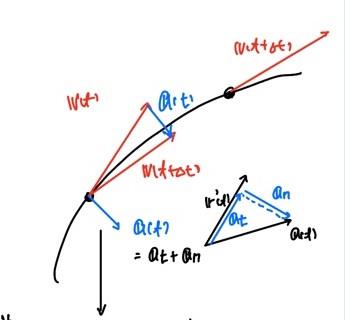 𝕧(t+Δt)
𝕧(t)
𝕒(t)
𝕧(t+Δt)
𝕒(t)
= 𝕒t + 𝕒n
𝕧(t)
𝕒t
𝕒n
𝕒(t)